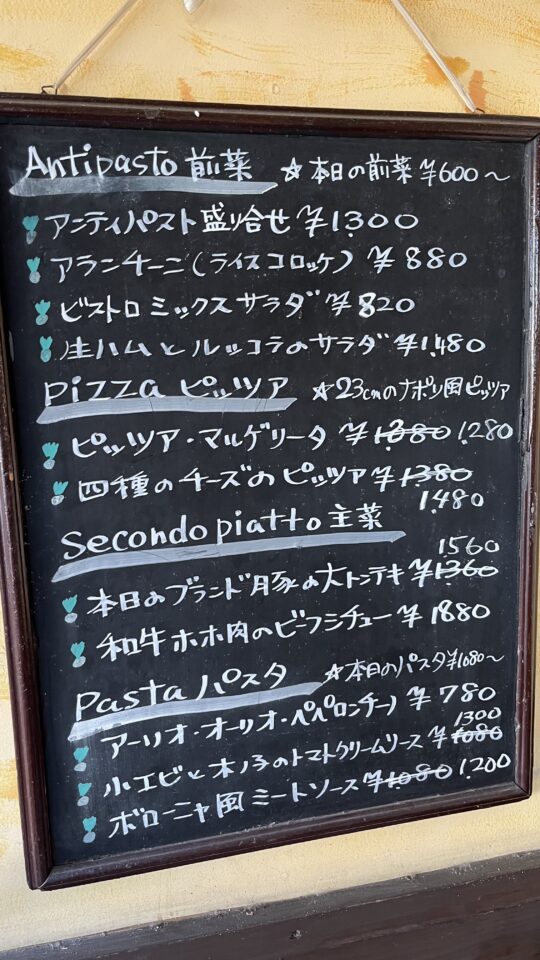 Antipasto 前菜 ☆本日の前菜 ¥600〜
アンティパスト盛り合せ ¥1.300
アランチーニ(ライスコロッケ) ¥880
ビストロミックスサラダ ¥820
生ハムとルッコラのサラダ ¥1.480
Pizza ピッツア ☆23cmのナポリ風ピッツァ
ピッツア・マルゲリータ ¥1.280
四種のチーズのピッツァ ¥1380
1.480
Secondo piatto 主菜
1560
本日のブランド豚の大トンテキ ¥1360
和牛ホホ肉のビーフシチュー ¥1880
Pasta パスタ ☆本日のパスタ¥1080〜
アーリオ・オーリオ・ペペロンチーノ ¥780
1300
小エビと木ノ子のトマトクリームソース ¥1080
ボローニャ風ミートソース ¥1.080 1.200